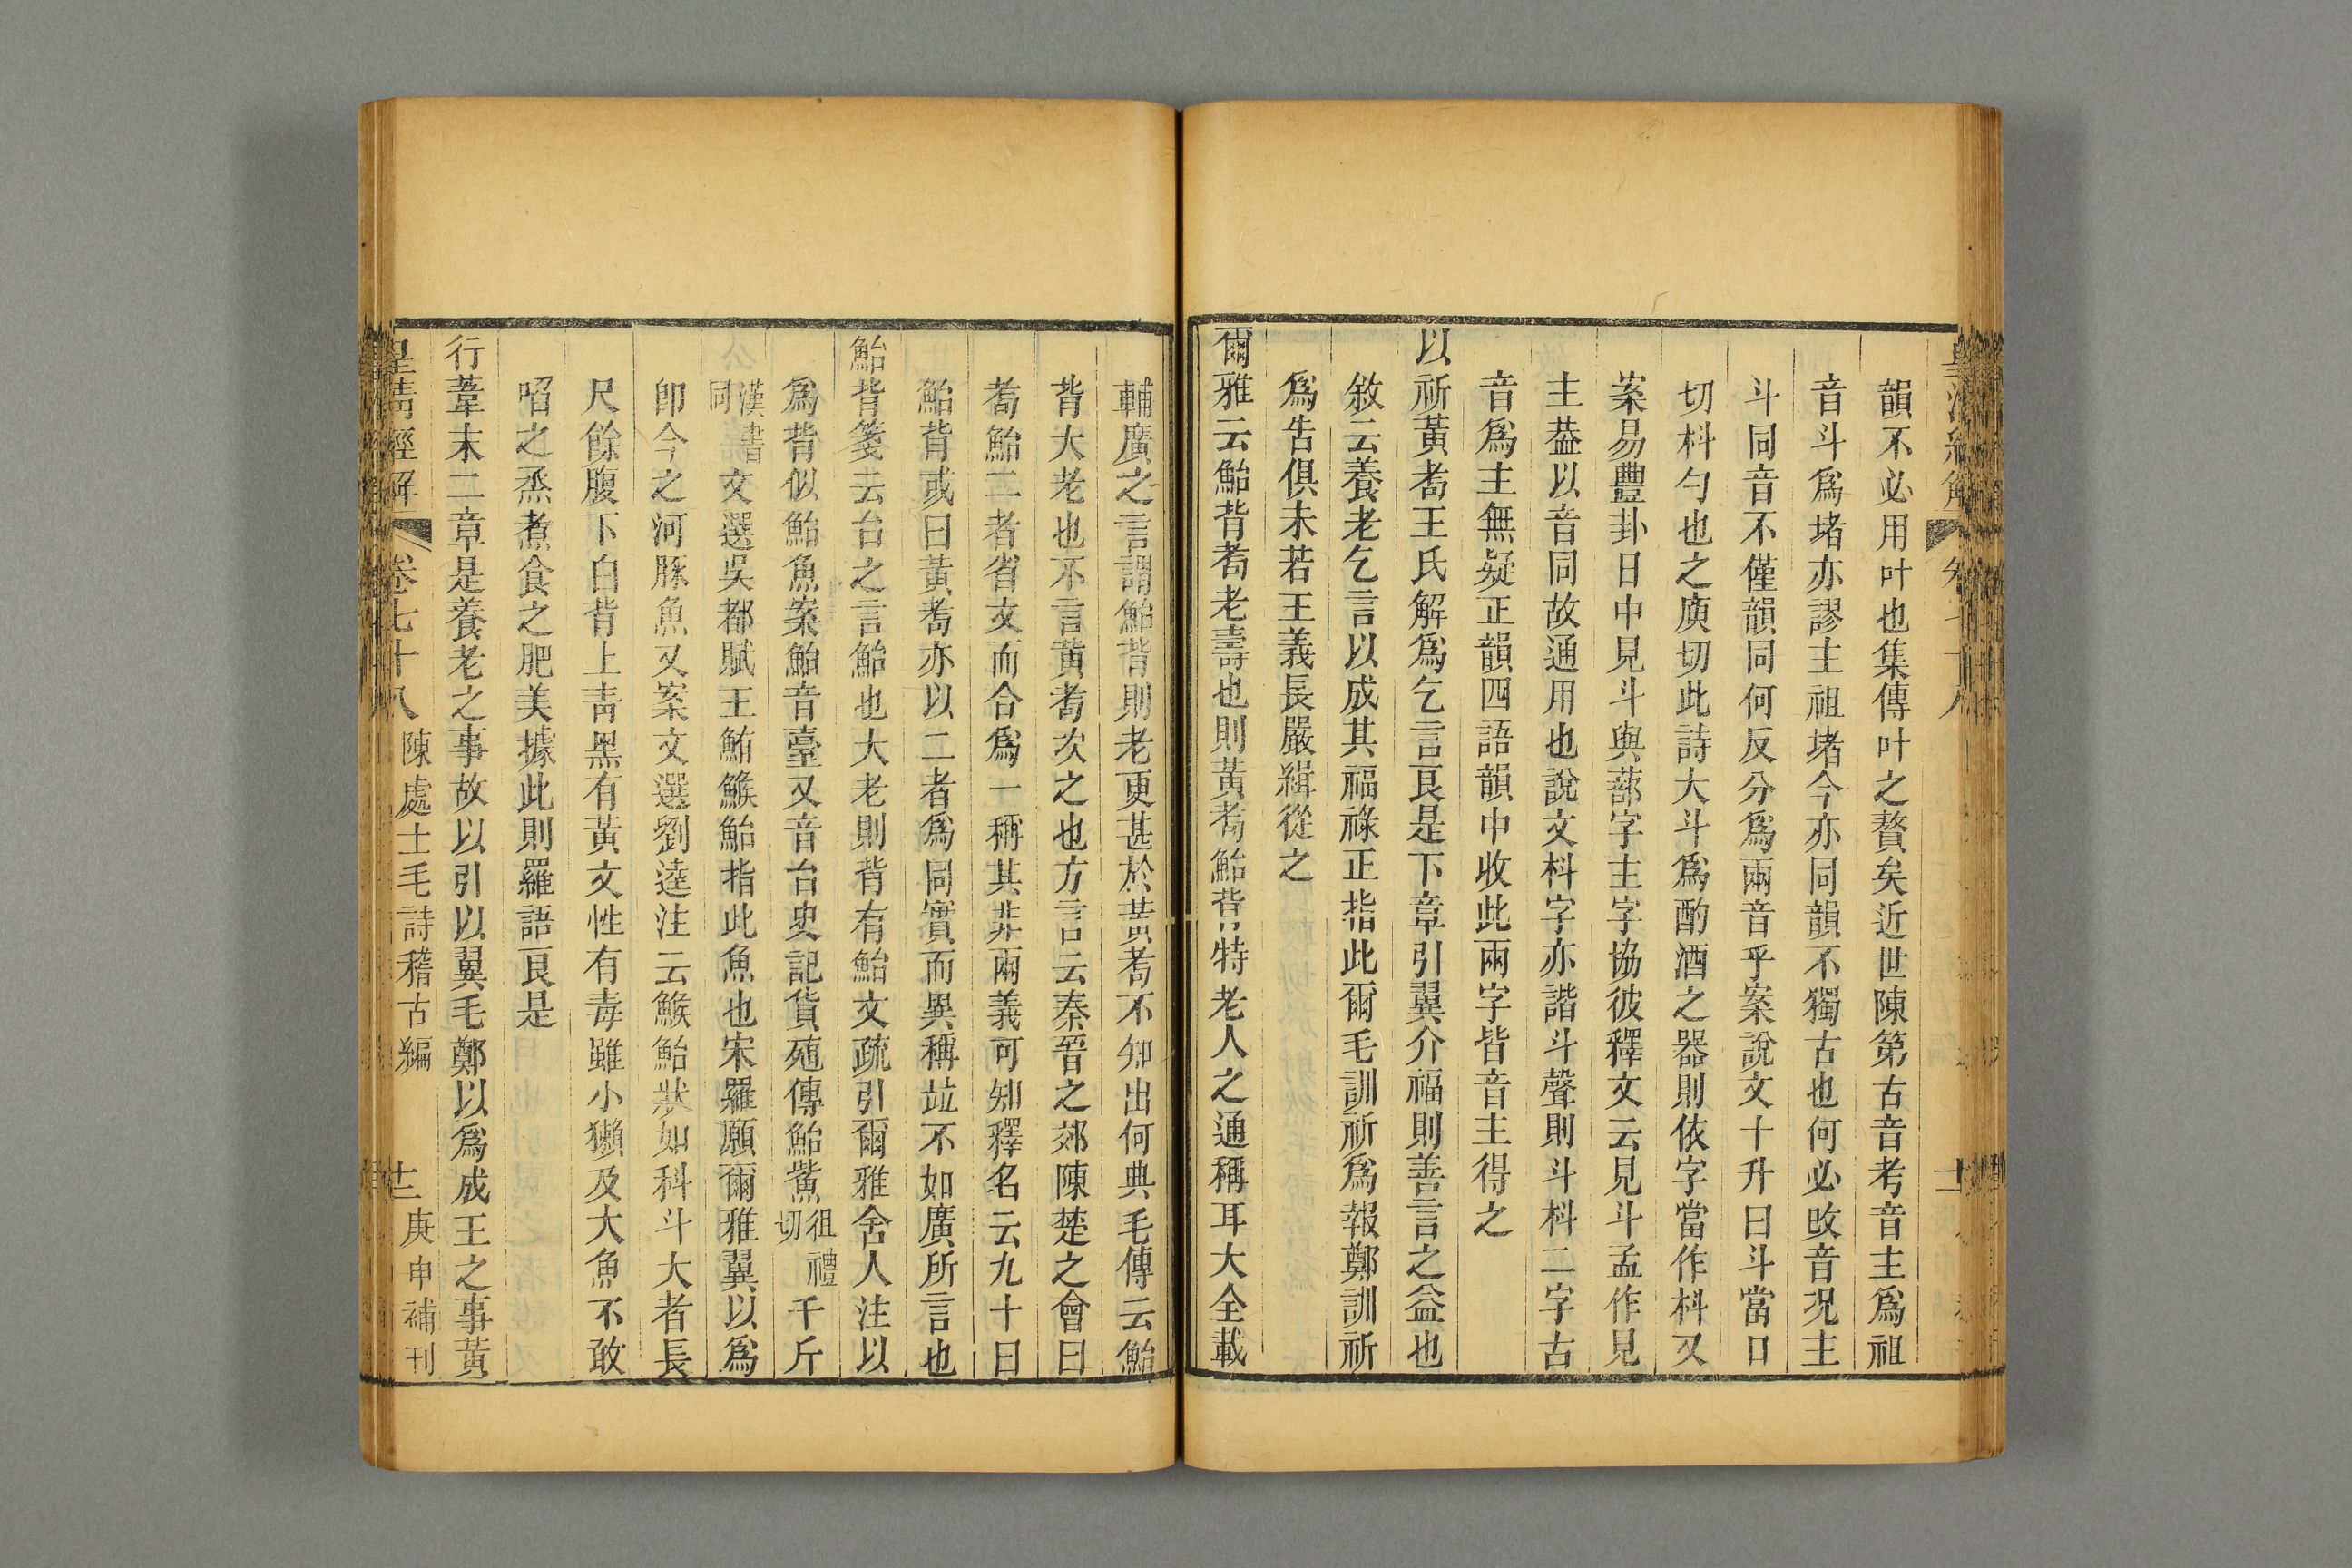 韻不必用叶也集傳叶之贅矣近世陳第古音考音主爲祖
音斗爲堵亦謬主祖堵今亦同韻不獨古也何必改音況主
斗同音不僅韻同何反分爲兩音乎案說文十升曰斗當口
切枓勺也之庾切此詩大斗爲酌酒之器則依字當作枓又
案易豐卦日中見斗與蔀字主字協彼釋文云見斗孟作見
主葢以音同故通用也說文枓字亦諧斗聲則斗枓二字古
音爲主無疑正韻四語韻中收此兩字皆音主得之
以祈黃耇王氏解爲乞言良是下章引翼介福則善言之益也
敘云養老乞言以成其福祿正指此爾毛訓祈爲報鄭訓祈
爲告俱未若王義長嚴緝從之
爾雅云鮐背耇老壽也則黃耇鮐背特老人之通稱耳大全載
輔廣之言謂鮐背則老更甚於黃耇不知出何典毛傳云鮐
背大老也不言黃耇次之也方言云秦晉之郊陳楚之會曰
耇鮐二者省文而合爲一稱其非兩義可知釋名云九十曰
鮐背或曰黃耇亦以二者爲同實而異稱竝不如廣所言也
鮐背箋云台之言鮐也大老則背有鮐文疏引爾雅舍人注以
爲背似鮐魚案鮐音臺又音台史記貨殖傳鮐鮆徂禮切千斤
漢書同文選吳都賦王鮪鯸鮐指此魚也宋羅願爾雅翼以爲
卽今之河豚魚又案文選劉逵注云鯸鮐狀如科斗大者長
尺餘腹下白背上青黑有黃文性有毒雖小獺及大魚不敢
啗之烝煮食之肥美據此則羅語良是
行葦末二章是養老之事故以引以翼毛鄭以爲成王之事黃
皇清經解 卷七十八 陳處士毛詩稽古編 十二 庚申補刊